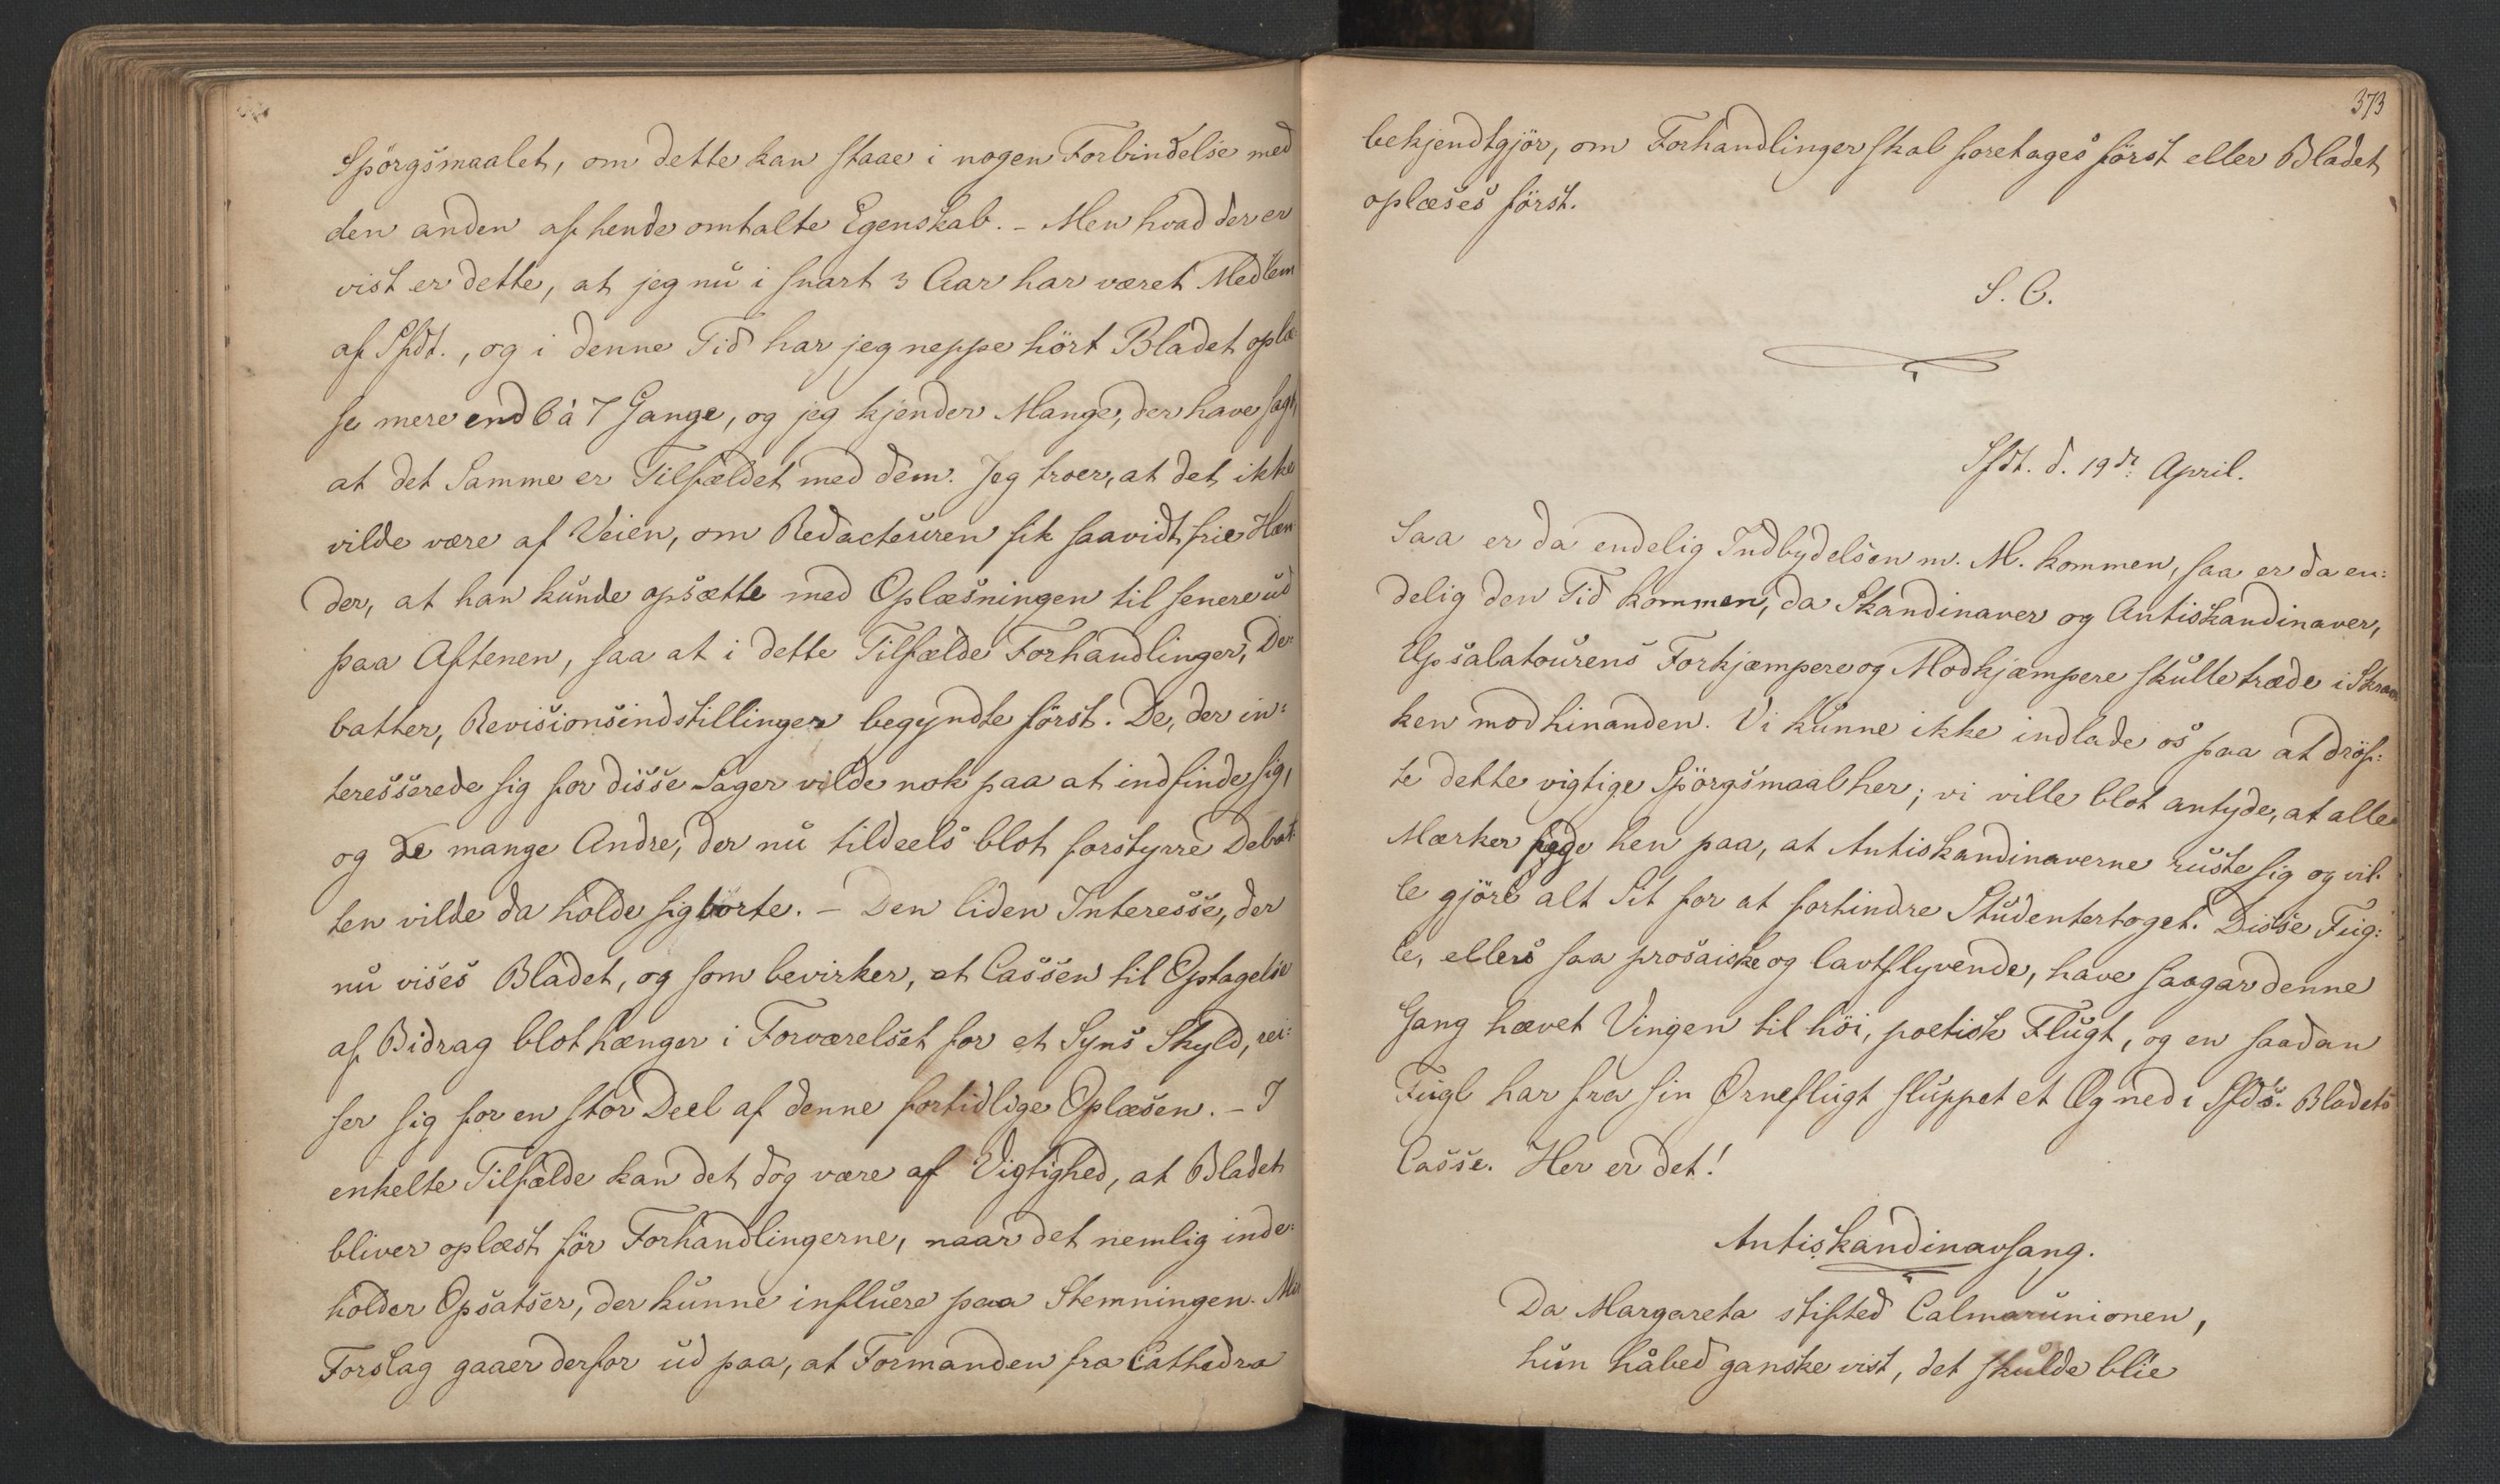 Spörgsmaalet, om dette kan staae i nogen Forbindelse med
den anden af hende omtalte Egenskab. - Men hvad der er
vist er dette, at jeg nu i snart 3 Aar har været Medlem
af Sfdt., og i denne Tid har jeg neppe hört Bladet oplæ-
se mere end 6 à 7 Gange, og jeg kjender Mange, der have sagt,
at det Samme er Tilfældet med dem. Jeg troer, at det ikke
vilde være af Veien, om Redacteuren fik saavidt frie Hæn-
der, at han kunde opsætte med Oplæsningen til senere ud
paa Aftenen, saa at i dette Tilfælde Forhandlinger, De-
batter, Revisionsindstillinger begyndte först. De, der in-
teresserede sig for disse Sager vilde nok paa at indfinde sig,
og de mange Andre, der nu tildeels blot forstyrre Debat-
ten vilde da holde sig borte. - Den liden Interesse, der
nu vises Bladet, og som bevirker, at Cassen til Optagelse
af Bidrag blot hænger i Forværelset for et Syns Skyld, rei-
ser sig for en stor Deel af denne fortidlige Oplæsen. - I
enkelte Tilfælde kan det dog være af Vigtighed, at Bladet
bliver oplæst för Forhandlingerne, naar det nemlig inde-
holder Opsatser, der kunne influere paa Stemningen. Mit
Forslag gaaer derfor ud paa, at Formanden fra Cathedra
373
bekjendtgjör, om Forhandlinger skal foretages först eller Bladet
oplæses först.
S. C.
Sfdt. d. 19de April.
Saa er da endelig Indbydelsen m. M. kommen, saa er da en-
delig den Tid kommen, da Skandinaver og Antiskandinaver,
Upsalatourens Forkjæmpere og Modkjæmpere skulle træde i Skran-
ken mod hinanden. Vi kunne ikke indlade os paa at dröf-
te dette vigtige Spörgsmaal her; vi ville blot antyde, at alle
Mærker pege hen paa, at Antiskandinaverne ruste sig og vil-
le gjöre alt Sit for at forhindre Studentertoget. Disse Fug-
le, ellers saa prosaiske og lavtflyvende, have saagar denne
Gang hævet Vingen til höi, poetisk Flugt, og en saadan
Fugl har fra sin Ørneflugt sluppet et Æg ned i Sfds. Bladets
Casse. Her er det!
Antiskandinavsang.
Da Margareta stifted Calmarunionen,
hun håbed ganske vist, det skulde blie